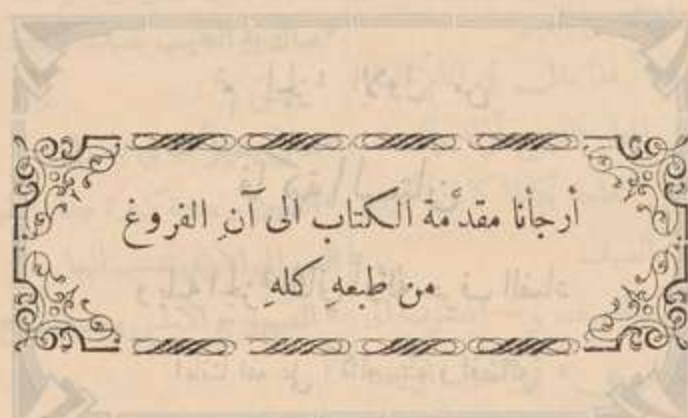 أرجأنا مقدّمة الكتاب الى آنِ الفروغ
من طبعهِ كلهِ